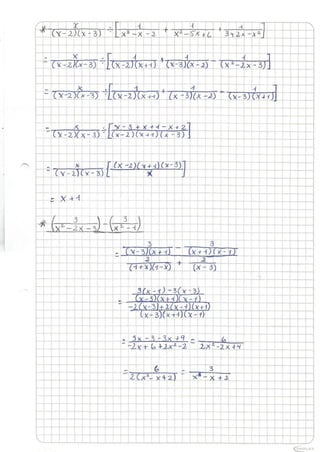 * x/((x-2)(x-3)) ÷ [1/(x²-x-2) + 1/(x²-5x+6) + 1/(3+2x-x²)]
= x/((x-2)(x-3)) ÷ [1/((x-2)(x+1)) + 1/((x-3)(x-2)) - 1/(x²-2x-3)]
= x/((x-2)(x-3)) ÷ [1/((x-2)(x+1)) + 1/((x-3)(x-2)) - 1/((x-3)(x+1))]
= x/((x-2)(x-3)) ÷ [(x-3+x+1-x+2)/((x-2)(x+1)(x-3))]
= x/((x-2)(x-3)) [((x-2)(x+1)(x-3))/x]
= x+1
* (3/(x²-2x-3)) - (3/(x²-1))
= (3/((x-3)(x+1)) - 3/((x+1)(x-1)))/(2/((1+x)(1-x)) + 2/(x-3))
= ((3(x-1)-3(x-3))/((x-3)(x+1)(x-1)))/((-2(x-3)+2(x-1)(x+1))/((x-3)(x+1)(x-1)))
= (3x-3-3x+9)/(-2x+6+2x²-2) = 6/(2x²-2x+4)
= 6/(2(x²-x+2)) = 3/(x²-x+2)